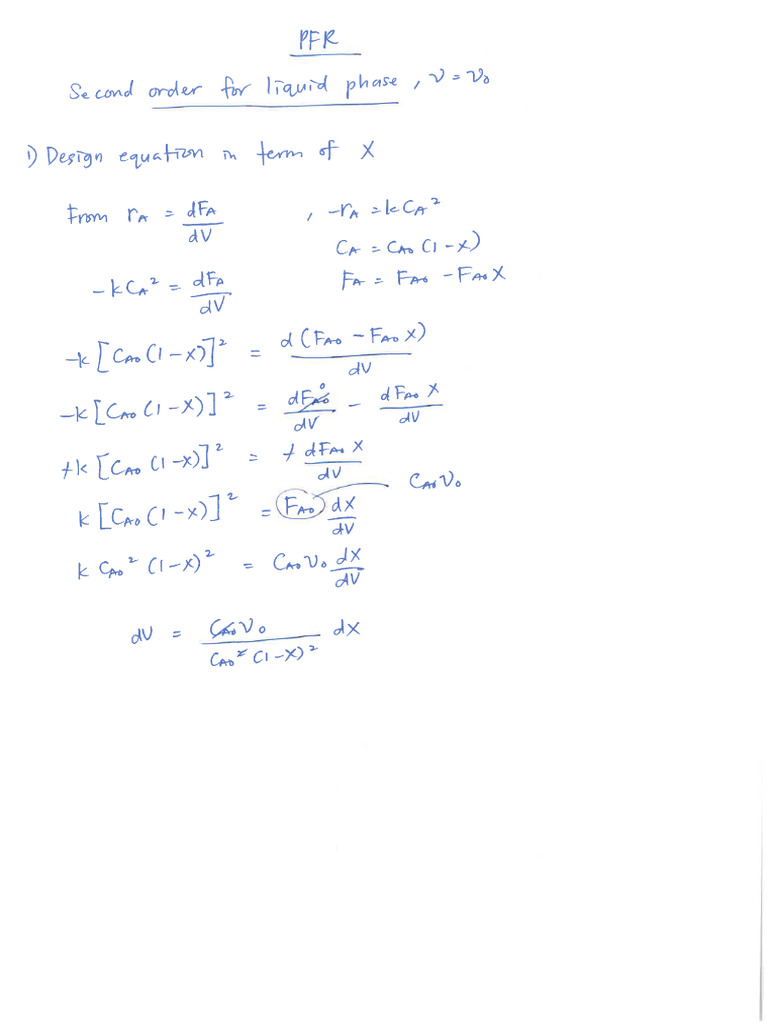 PFR
Second order for liquid phase, v = v₀
1) Design equation in term of X
From r_A = dF_A/dV , -r_A = kC_A²
C_A = C_A0 (1-X)
-kC_A² = dF_A/dV F_A = F_A0 - F_A0 X
-k[C_A0 (1-X)]² = d(F_A0 - F_A0 X)/dV
-k[C_A0 (1-X)]² = dF_A0/dV 0 - dF_A0 X/dV
+k[C_A0 (1-X)]² = + dF_A0 X/dV
C_A0 v₀
k[C_A0 (1-X)]² = F_A0 dX/dV
k C_A0² (1-X)² = C_A0 v₀ dX/dV
dV = C_A0 v₀/C_A0² (1-X)² dX